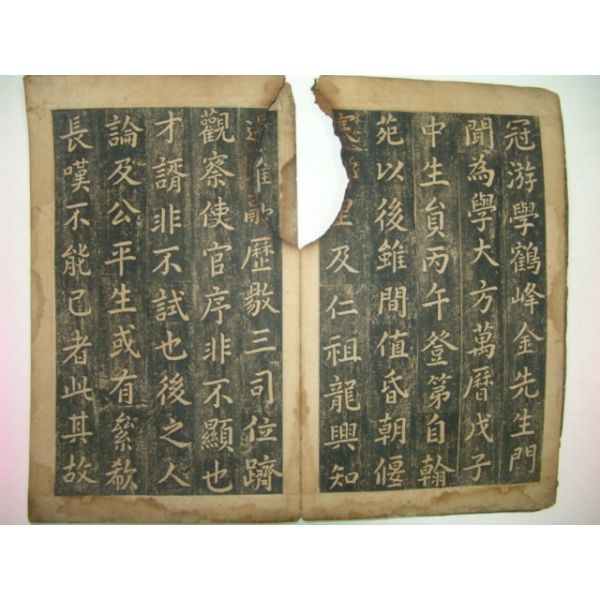 冠游學鶴峰金先生門
聞為學大方萬曆戊子
中生貟丙午登第自翰
苑以後雖間值昏朝偃
里及仁祖龍興知
歷敭三司位躋
觀察使官序非不顯也
才謂非不試也後之人
論及公平生或有欷
長嘆不能已者此其故